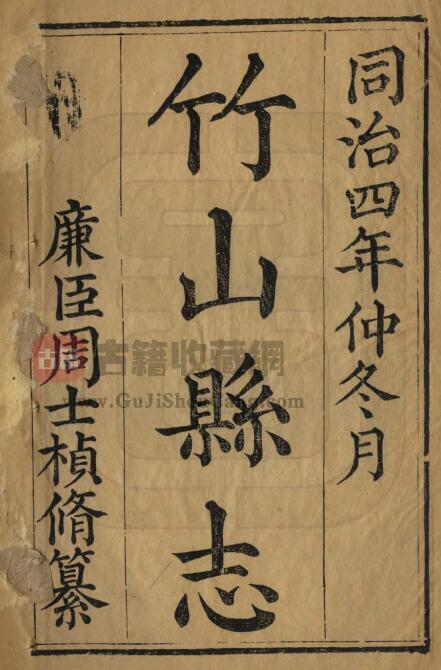 同治四年仲冬月
竹山縣志
廉臣周士楨脩纂
古籍收藏網
www.GuJiShouCang.com